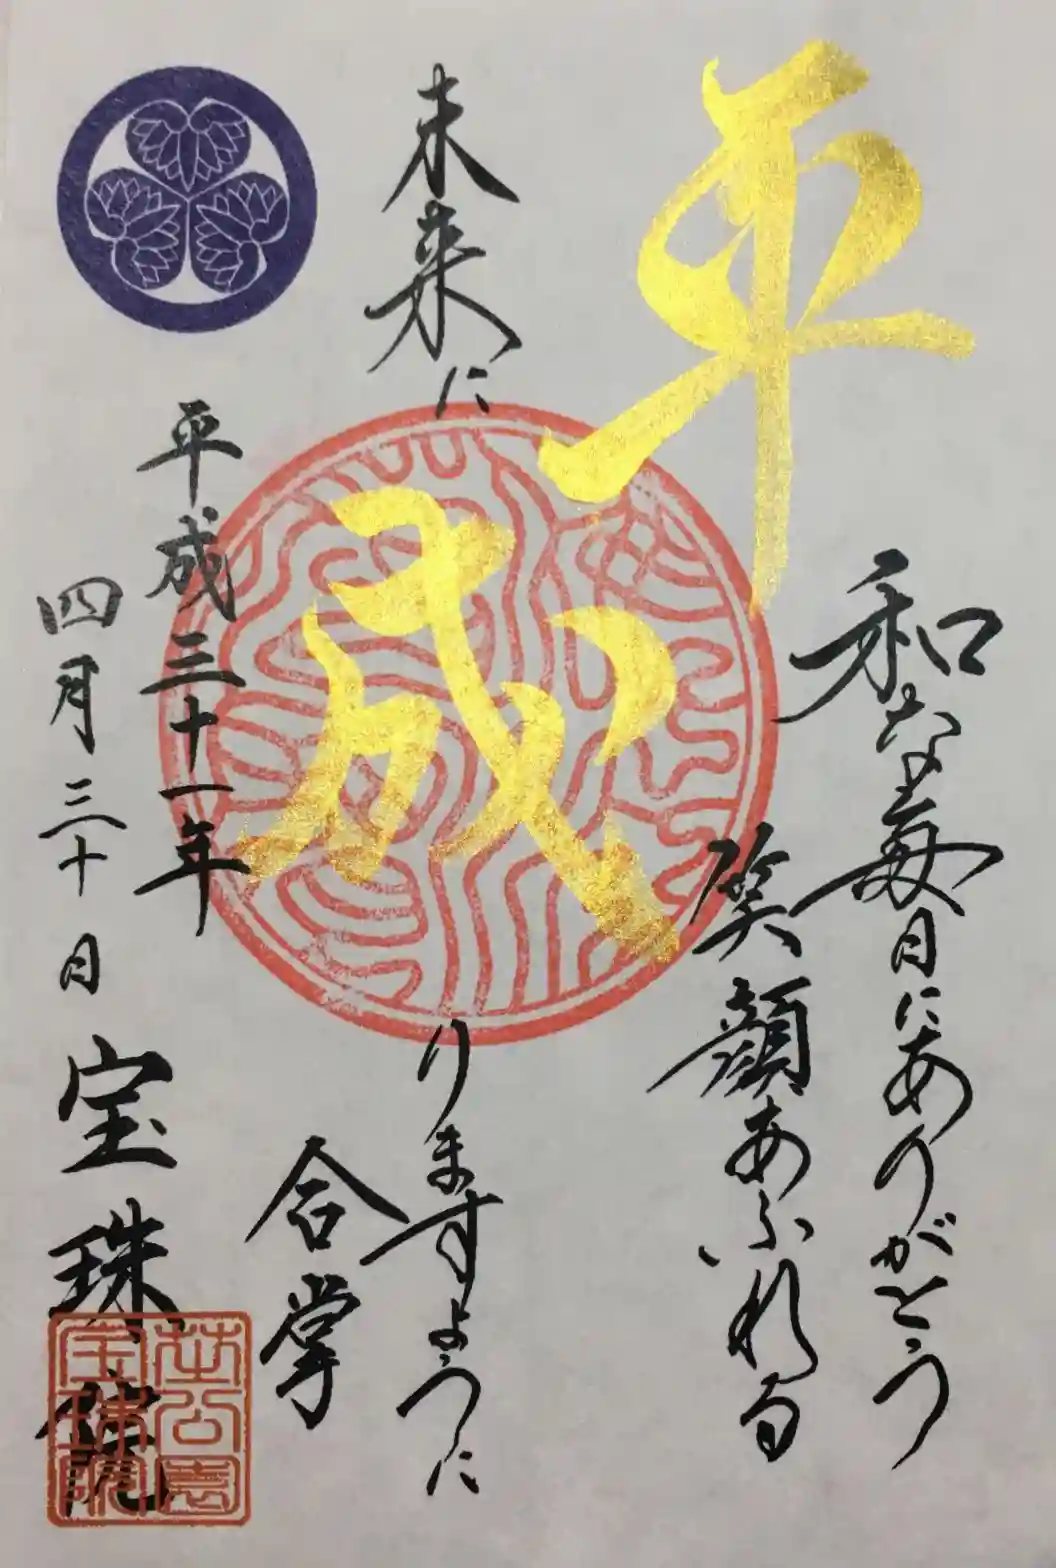 平和な毎日にありがとう
笑顔あふれる
未来に成りますように
合掌
平成三十一年
四月三十日
宝珠院
芝公園
宝珠院